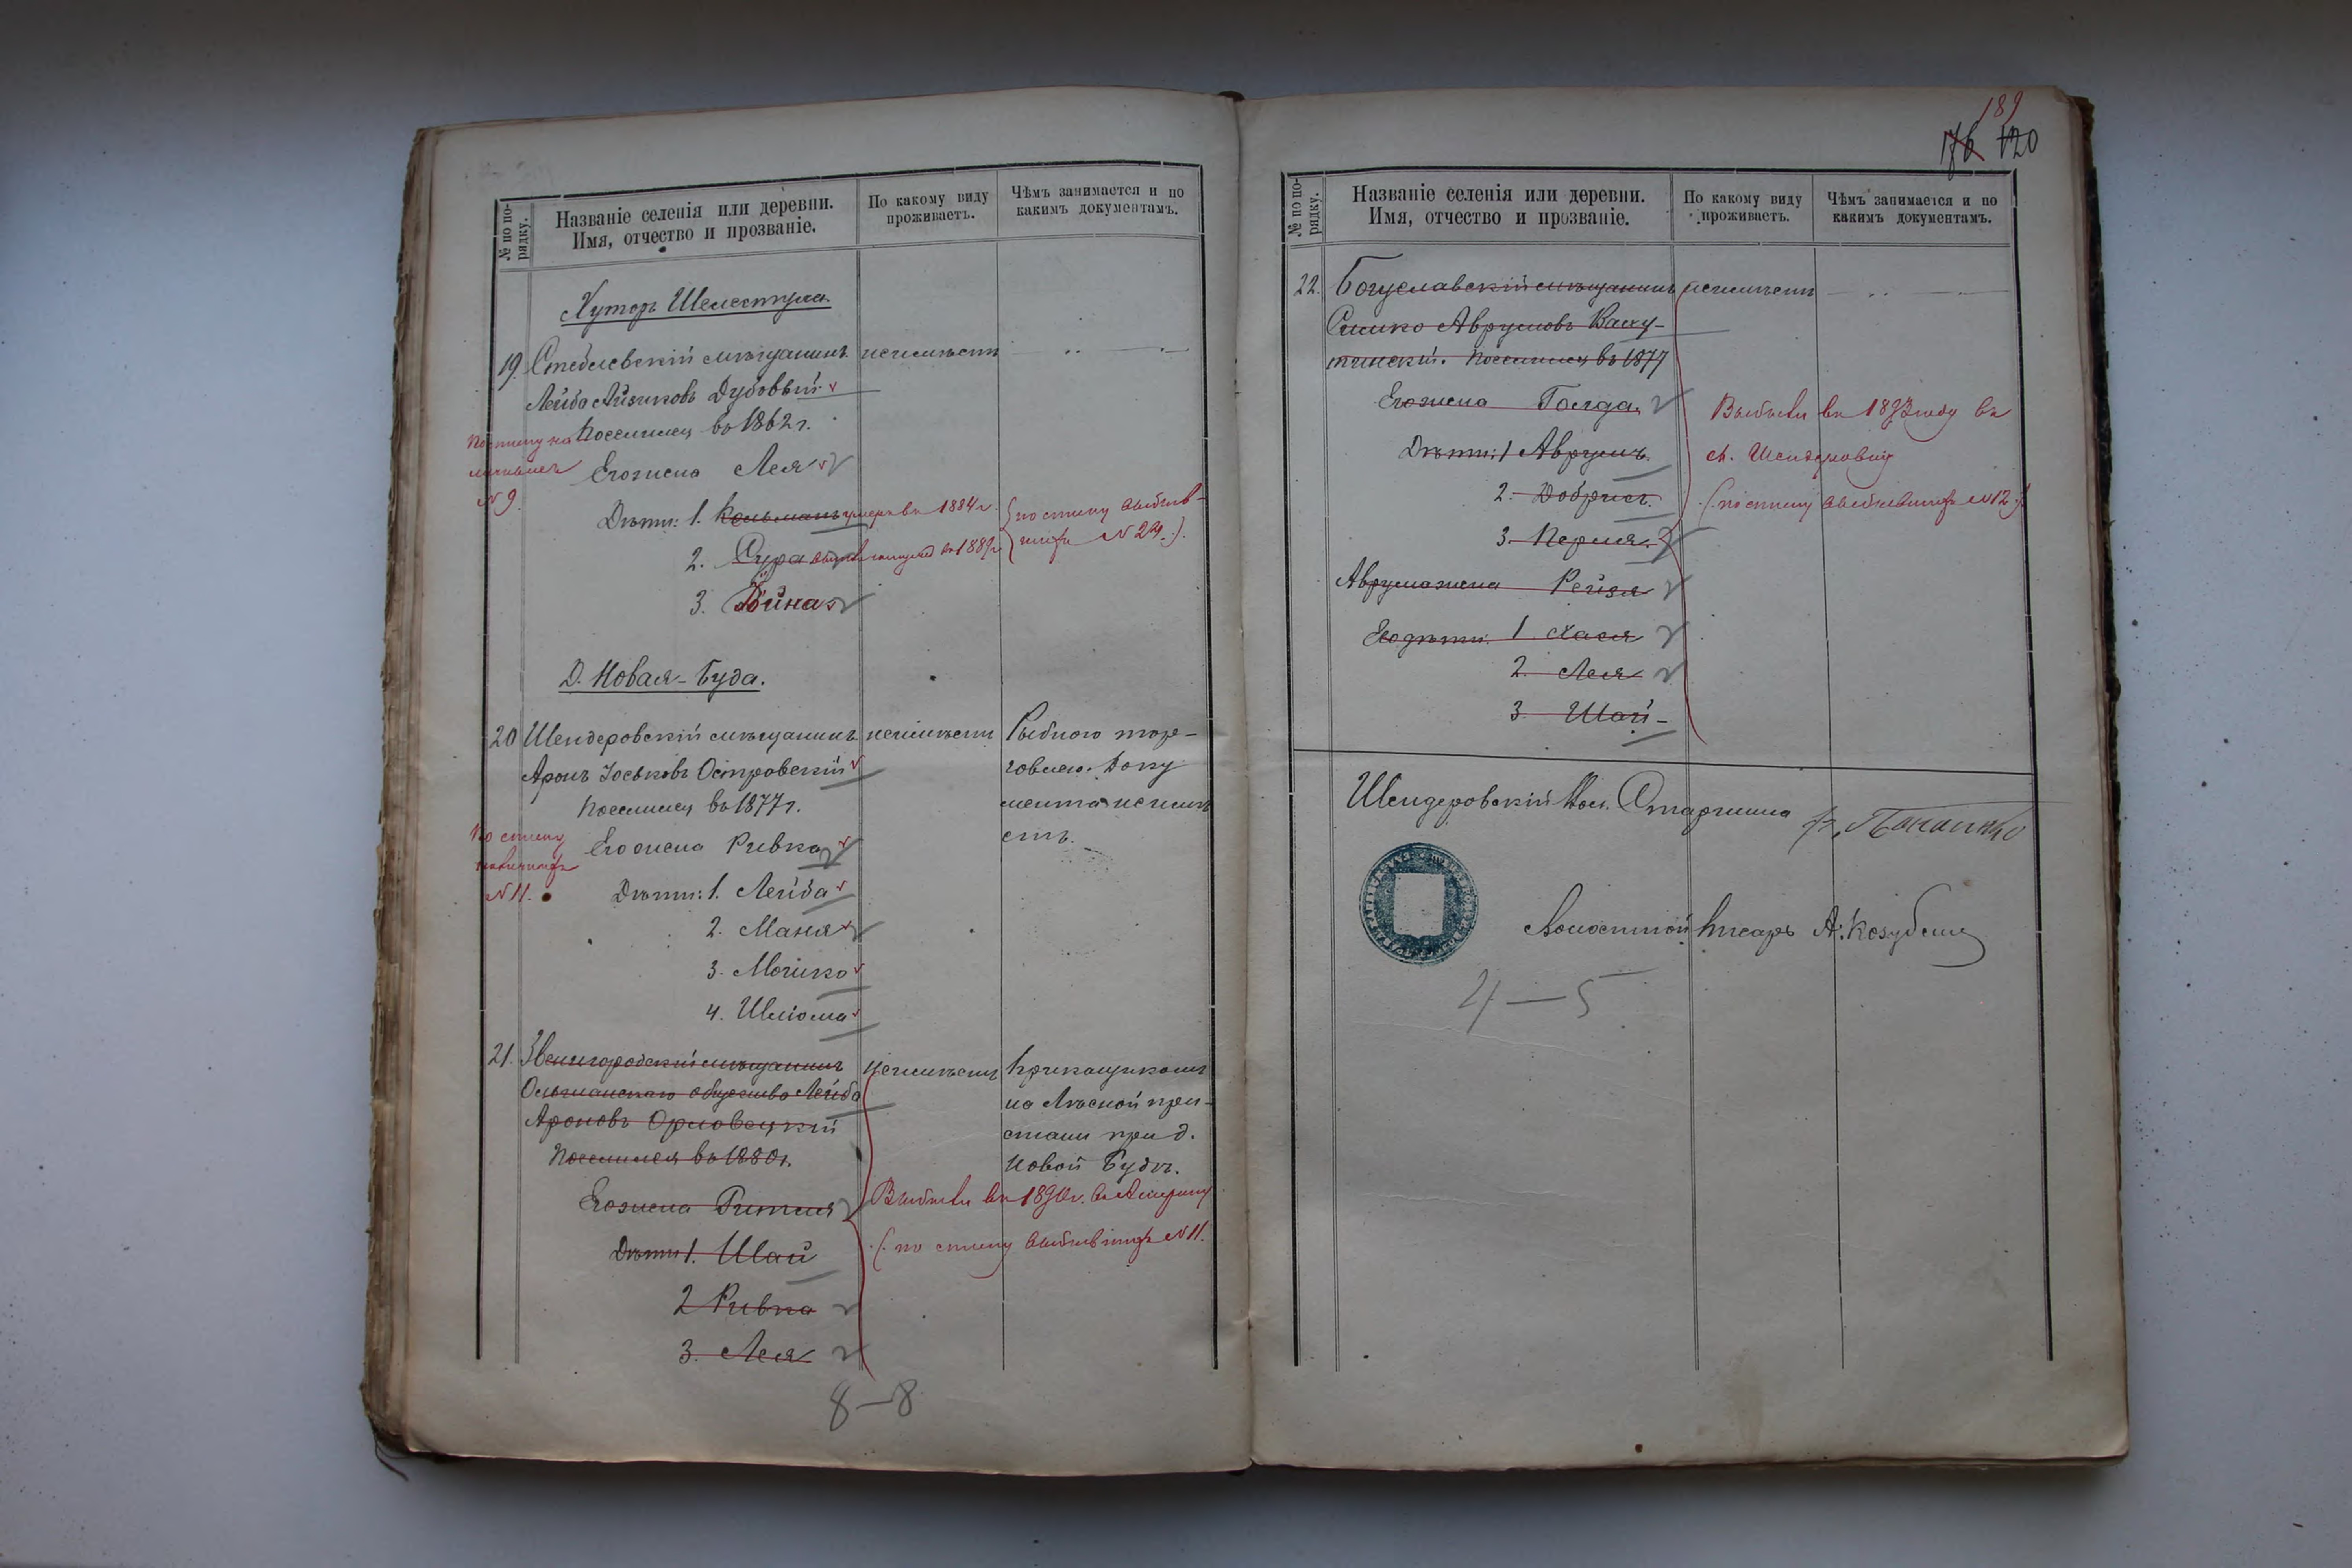 № по по-
рядку.
Названіе селенія или деревни.
Имя, отчество и прозваніе.
По какому виду
проживаетъ.
Чѣмъ занимается и по
какимъ документамъ.
Хуторъ Шелестуха.
19. Стеблевскій мѣщанинъ неимѣетъ
Лейба Айзиковъ Дубовый
Поселился въ 1862 г.
По списку на
личныхъ
№ 9
Его жена Лея
Дѣти: 1. Кельманъ умеръ въ 1884 г. (по списку выбыв-
2. Сура въ 1889 г. шихъ № 24.)
3. Бейна
Д. Новая-Буда.
20 Шендеровскій мѣщанинъ неимѣетъ Рыбною тор-
Аронъ Іоськовъ Островскій говлею. Доку
Поселился въ 1877 г. мента неимѣ
По списку
№ 11.
Его жена Ривка етъ.
Дѣти: 1. Лейба
2. Маня
3. Мошко
4. Шліома
21. Звенигородскій мѣщанинъ неимѣетъ Прикащикомъ
Ольшанскаго общества Лейба на Лѣсной при-
Ароновъ Орловецкій стани при д.
Поселился въ 1880 г. Новой Будѣ.
Его жена Выбыли въ 1890 г. въ Америку
Дѣти 1. Шай (по списку выбывшихъ № 11.
2 Ривка
3. Лея
8—8
189
176 120
№ по по-
рядку.
Названіе селенія или деревни.
Имя, отчество и прозваніе.
По какому виду
проживаетъ.
Чѣмъ занимается и по
какимъ документамъ.
22. Богуславскій мѣщанинъ неимѣетъ
Симко Аврумовъ Васу-
тинскій. Поселился въ 1877
Его жена Голда Выбыли въ 1893 году въ
Дѣти: 1 Аврумъ. м. Шендеровку
2. Добрисъ. (по списку выбывшихъ № 12.)
3. Перля.
Аврума жена Рейзя
Его дѣти: 1 Хася
2. Лея
3. Шай
Шендеровскій Вол. Старшина
Волостной Писарь А. Козубенко
4—5